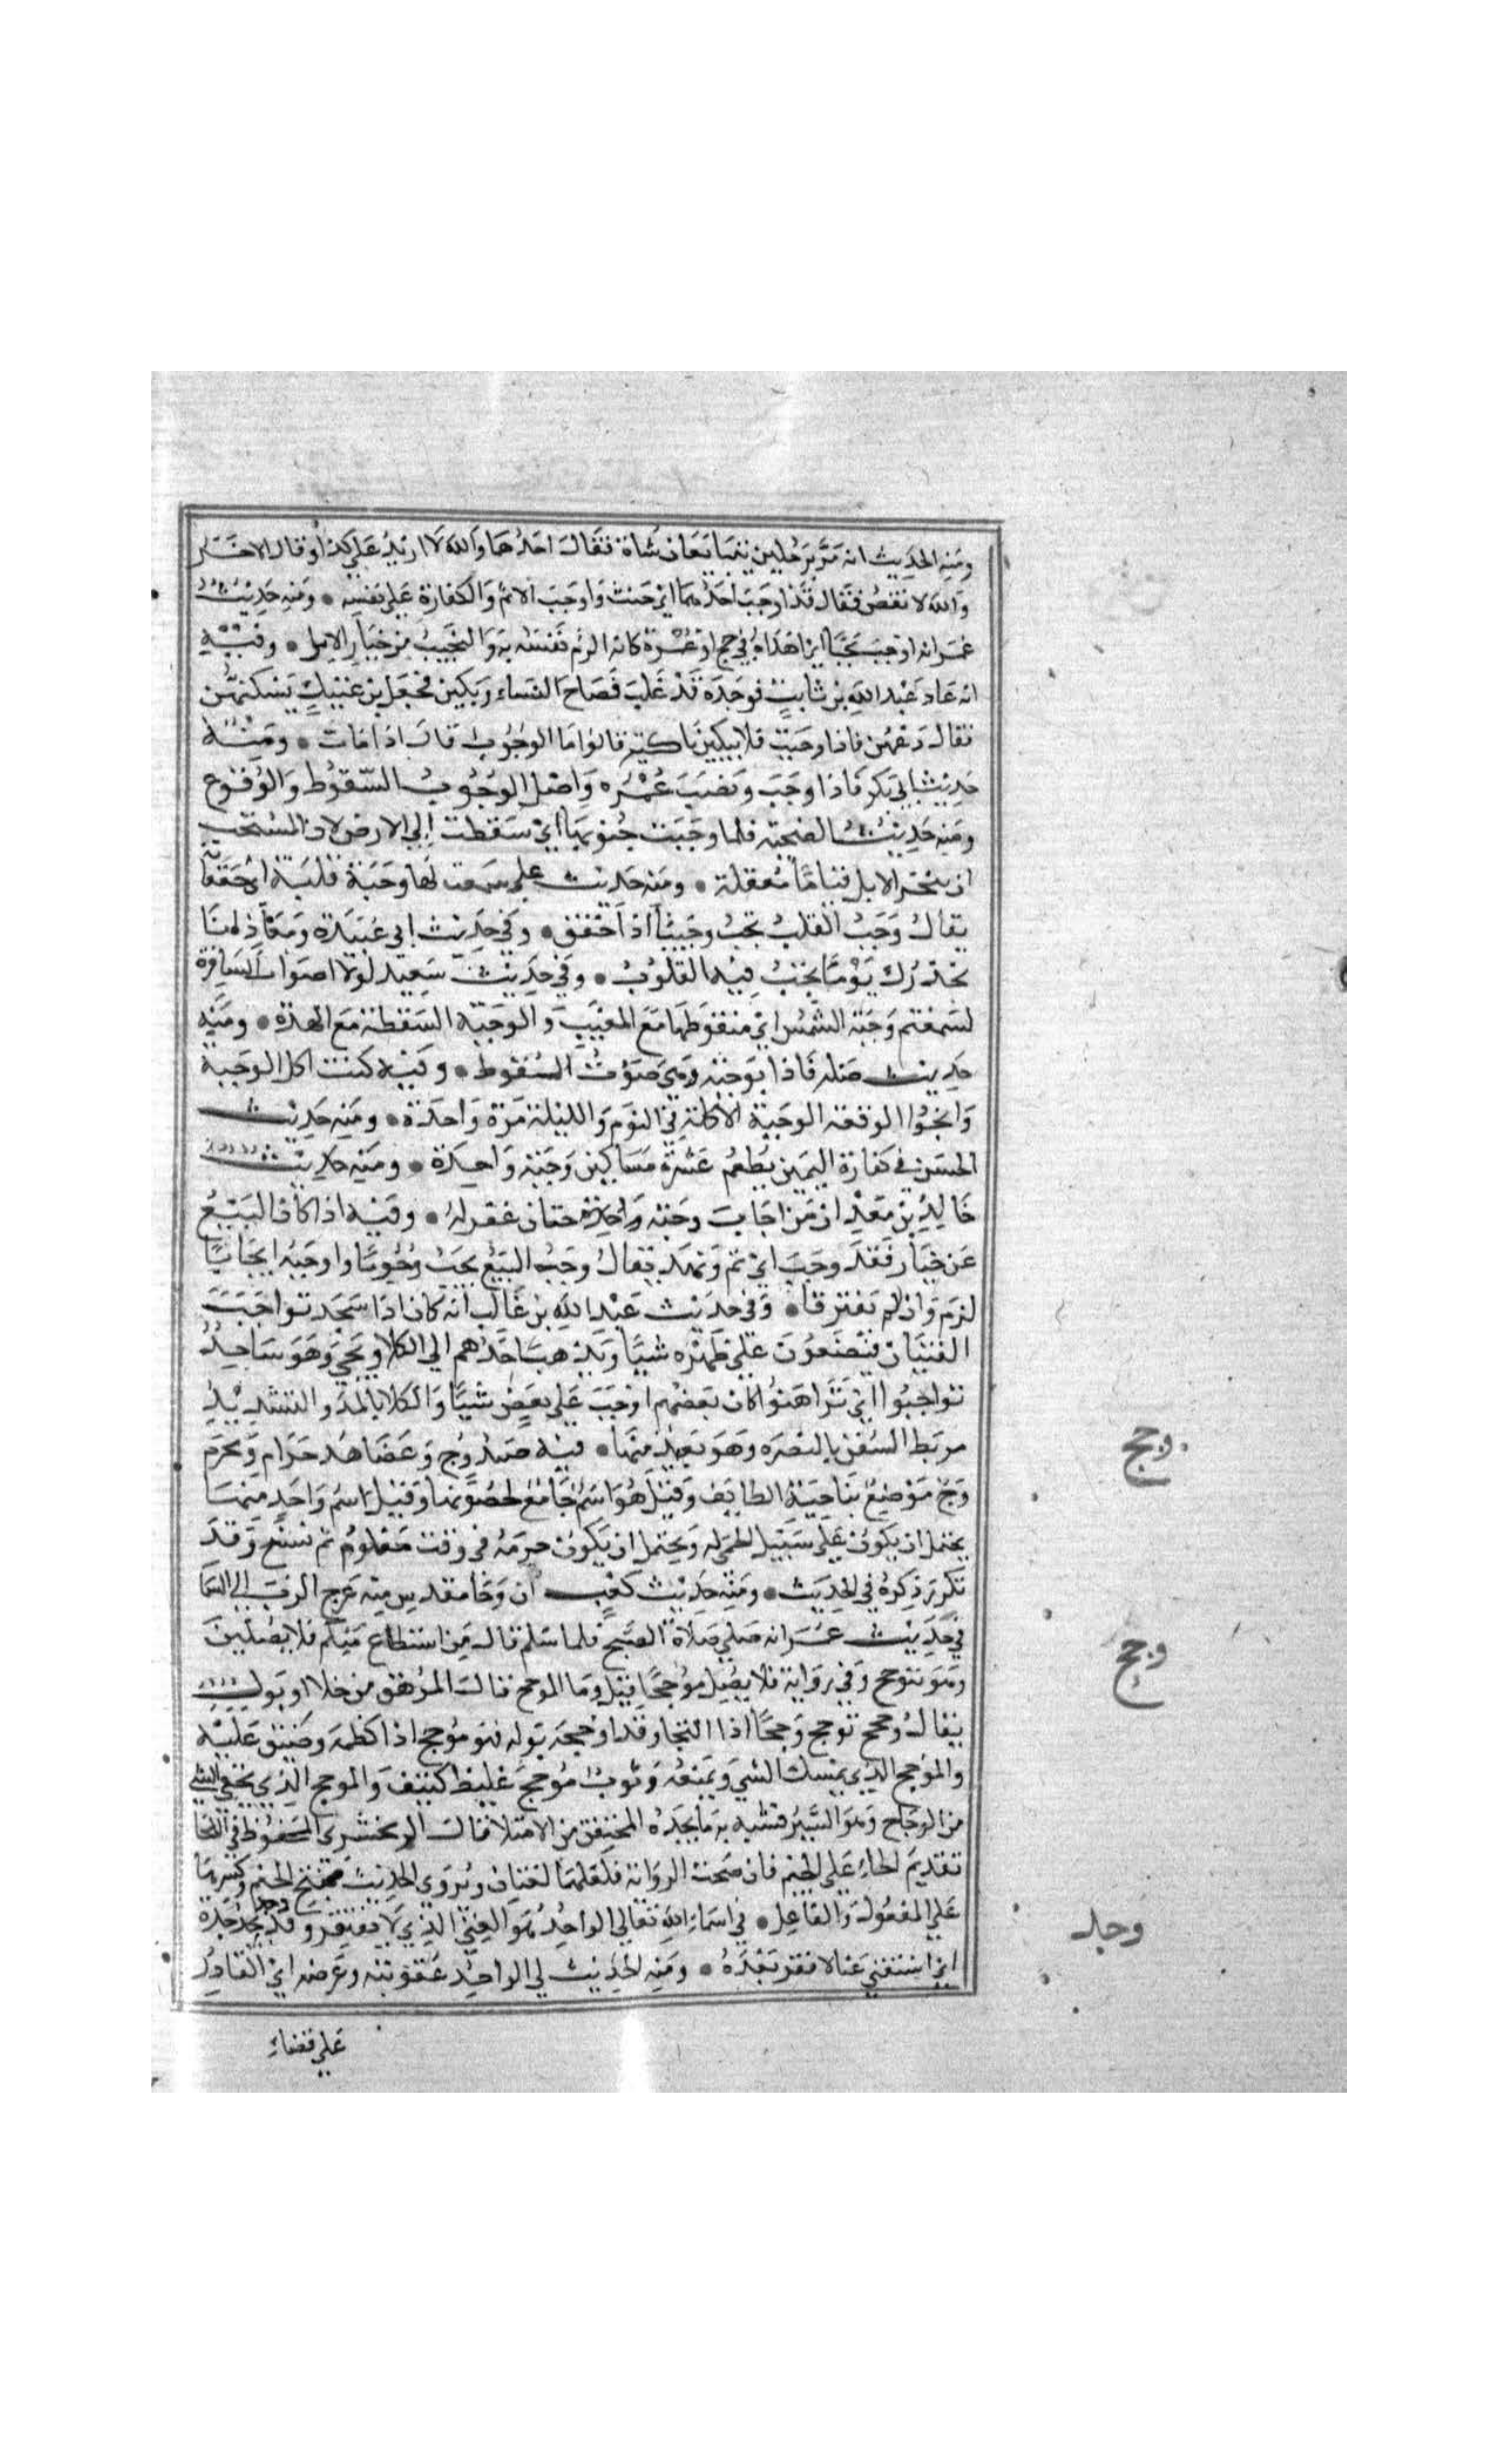 ومنه الحديث انه مر برجلين يتبايعان شاة فقال احدهما والله لا ازيد علي كذا وقال الاخر
والله لا نقص فقال قد اوجب احدهما اي حنث واوجب الاثم والكفارة علي نفسه • ومنه حديث
عمر انه اوجب نجيبا اي اهداه في حج او عمرة كانه الزم نفسه به والنجيب من خيار الابل • وفيه
انه عاد عبد الله بن ثابت فوجده قد غلب فصاح النساء وبكين فجعل بن عتيك يسكتهن
فقال دعهن فاذا وجبت فلا تبكين باكية قالوا ما الوجوب قال اذا مات • ومنه
حديث ابي بكر فاذا وجب ونضب عمره واصل الوجوب السقوط والوقوع
ومنه حديث الضحية فلما وجبت جنوبها اي سقطت الي الارض لان المستحب
ان تنحر الابل قياما معقلة • ومنه حديث علي سمعت لها وجبة قلبه اي خفقانه
يقال وجب القلب يجب وجيبا اذا خفق • وفي حديث ابي عبيدة ومعاذ انا
نحذرك يوما تجب فيه القلوب • وفي حديث سعيد لولا اصوات السافرة
لسمعتم وجبة الشمس اي سقوطها مع المغيب والوجبة السقطة مع الهدة • ومنه
حديث صله فاذا بوجبة وهي صوت السقوط • وفيه كنت اكل الوجبة
وانجوا الوقعة الوجبة الاكلة في اليوم والليلة مرة واحدة • ومنه حديث
الحسن في كفارة اليمين يطعم عشرة مساكين وجبة واحدة • ومنه حديث
خالد بن معد ان من اجاب وجبة واحدة ختان غفر له • وفيه اذا كان البيع
عن خيار فقد وجب اي تم ونفد يقال وجب البيع يجب وجوبا واوجبه ايجابا
لزم وان لم يفترقا • وفي حديث عبد الله بن غالب انه كان اذا سجد تواجب
الفتيان فيضعون علي ظهره شيا ويذهب احدهم الي الكلاء ويجي وهو ساجد
تواجبوا اي تراهنوا كان بعضهم اوجب علي بعض شيا والكلا بالمد والتشديد
مربط السفن بالبصره وهو بعيد منها • فيه صيد وج وعضاهه حرام ومحرم
وج موضع بناحية الطايف وقيل هو اسم جامع لحصونها وقيل اسم واحد منها
يحتمل ان يكون علي سبيل الحمي له ويحتمل ان يكون حرمه في وقت معلوم ثم نسخ وقد
تكرر ذكره في الحديث • ومنه حديث كعب ان وجا مقدس منه عرج الرب الي السما
في حديث عمر انه صلي صلاة الصبح فلما سلم قال من استطاع منكم فلا يصلين
وهو موجح وفي رواية فلا يصل موجحا قيل وما الموجح قال المرهق من خلا او بول
يقال وجح يوجح وجحا اذا التجا وقد اوجحه بوله فهو موجح اذا كظمه وضيق عليه
والموجح الذي يمسك الشي ويمنعه وثوب موجح غليظ كثيف والموجح الذي يخفي الشي
من الوجاح وهو الستر فشبه به ما يجده المحتقن من الامتلا قال الزمخشري المحفوظ في
تقديم الحاء علي الجيم فان صحت الرواية فلعلهما لغتان ويروي الحديث بفتح الجيم وكسرها
علي المفعول والفاعل • في اسماء الله تعالي الواجد هو الغني الذي لا يفتقر وقد وجد يجد جدة
اي استغني غنا لا فقر بعده • ومنه الحديث لي الواجد عقوبته وعرضه اي القادر
علي قضاء
وجج
وجح
وجد